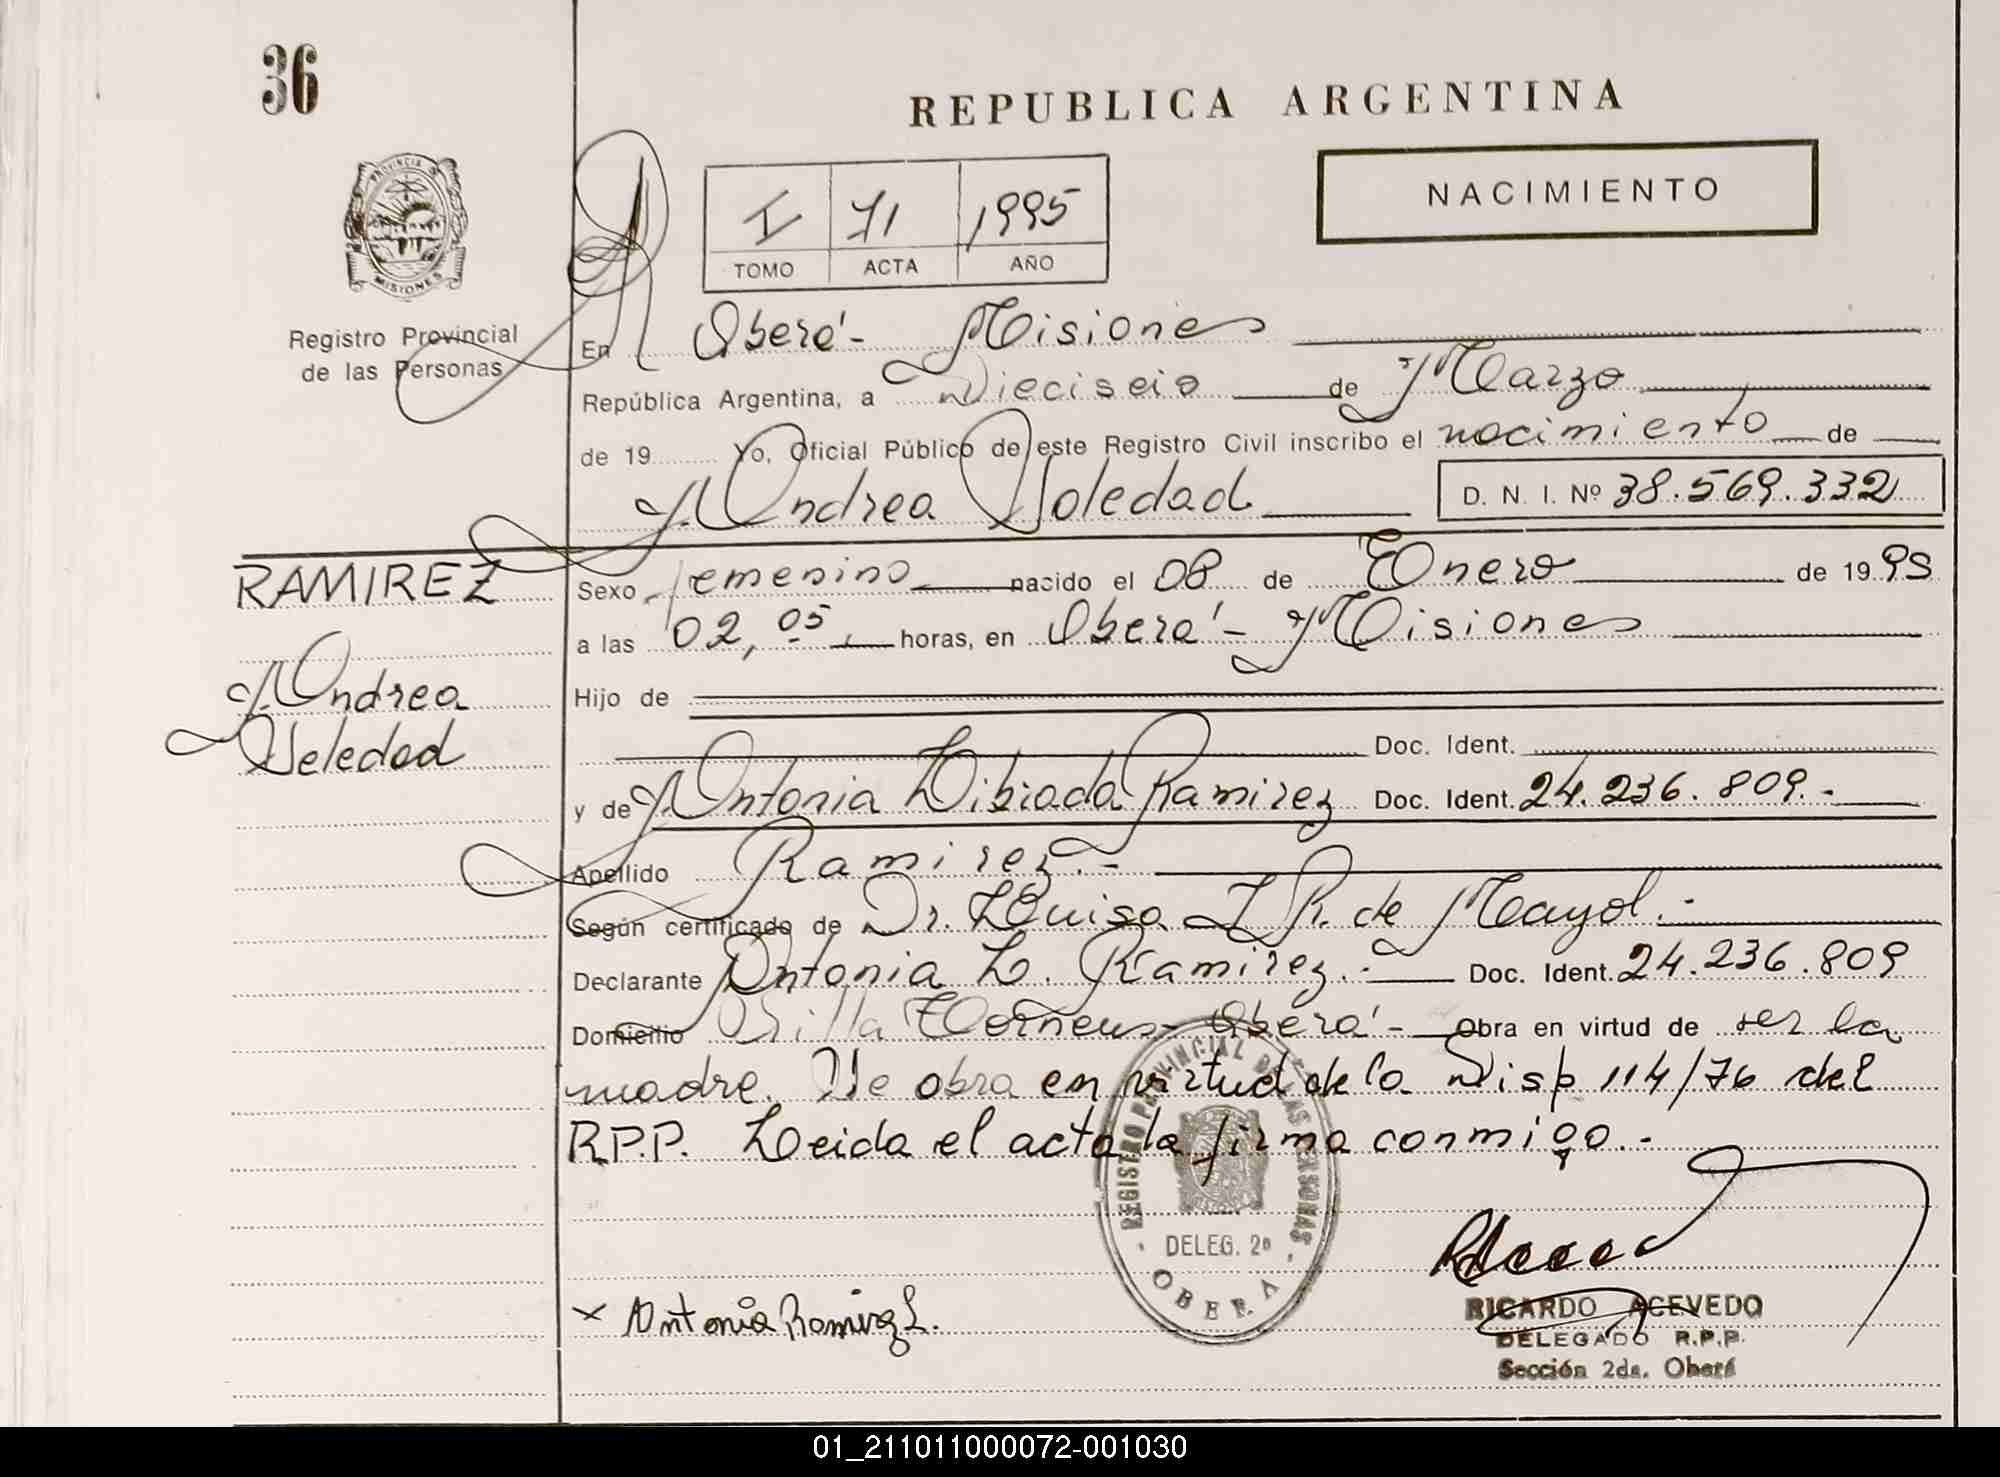 36
REPUBLICA ARGENTINA
PROVINCIA
MISIONES
I 71 1995
TOMO ACTA AÑO
NACIMIENTO
Registro Provincial
de las Personas
En Oberá - Misiones
República Argentina, a Dieciseis de Marzo
de 19 Yo, Oficial Público de este Registro Civil inscribo el nacimiento de
Andrea Soledad D. N. I. Nº 38.569.332
RAMIREZ
Andrea
Soledad
Sexo femenino nacido el 08 de Enero de 1995
a las 02,05, horas, en Oberá - Misiones
Hijo de
Doc. Ident.
y de Antonia Libiada Ramirez Doc. Ident. 24.236.809.-
Apellido Ramirez.-
Según certificado de Dr. Luisa I R. de Mayol.-
Declarante Antonia L. Ramirez.- Doc. Ident. 24.236.809
Domicilio Villa - Oberá - Obra en virtud de ser la
madre. Se obra en virtud de la Disp 114/76 del
R.P.P. Leida el acta la firma conmigo.-
REGISTRO PROVINCIAL DE LAS PERSONAS
DELEG. 2ª
OBERA
x Antonia Ramirez L.
RICARDO ACEVEDO
DELEGADO R.P.P.
Sección 2da. Oberá
01_211011000072-001030